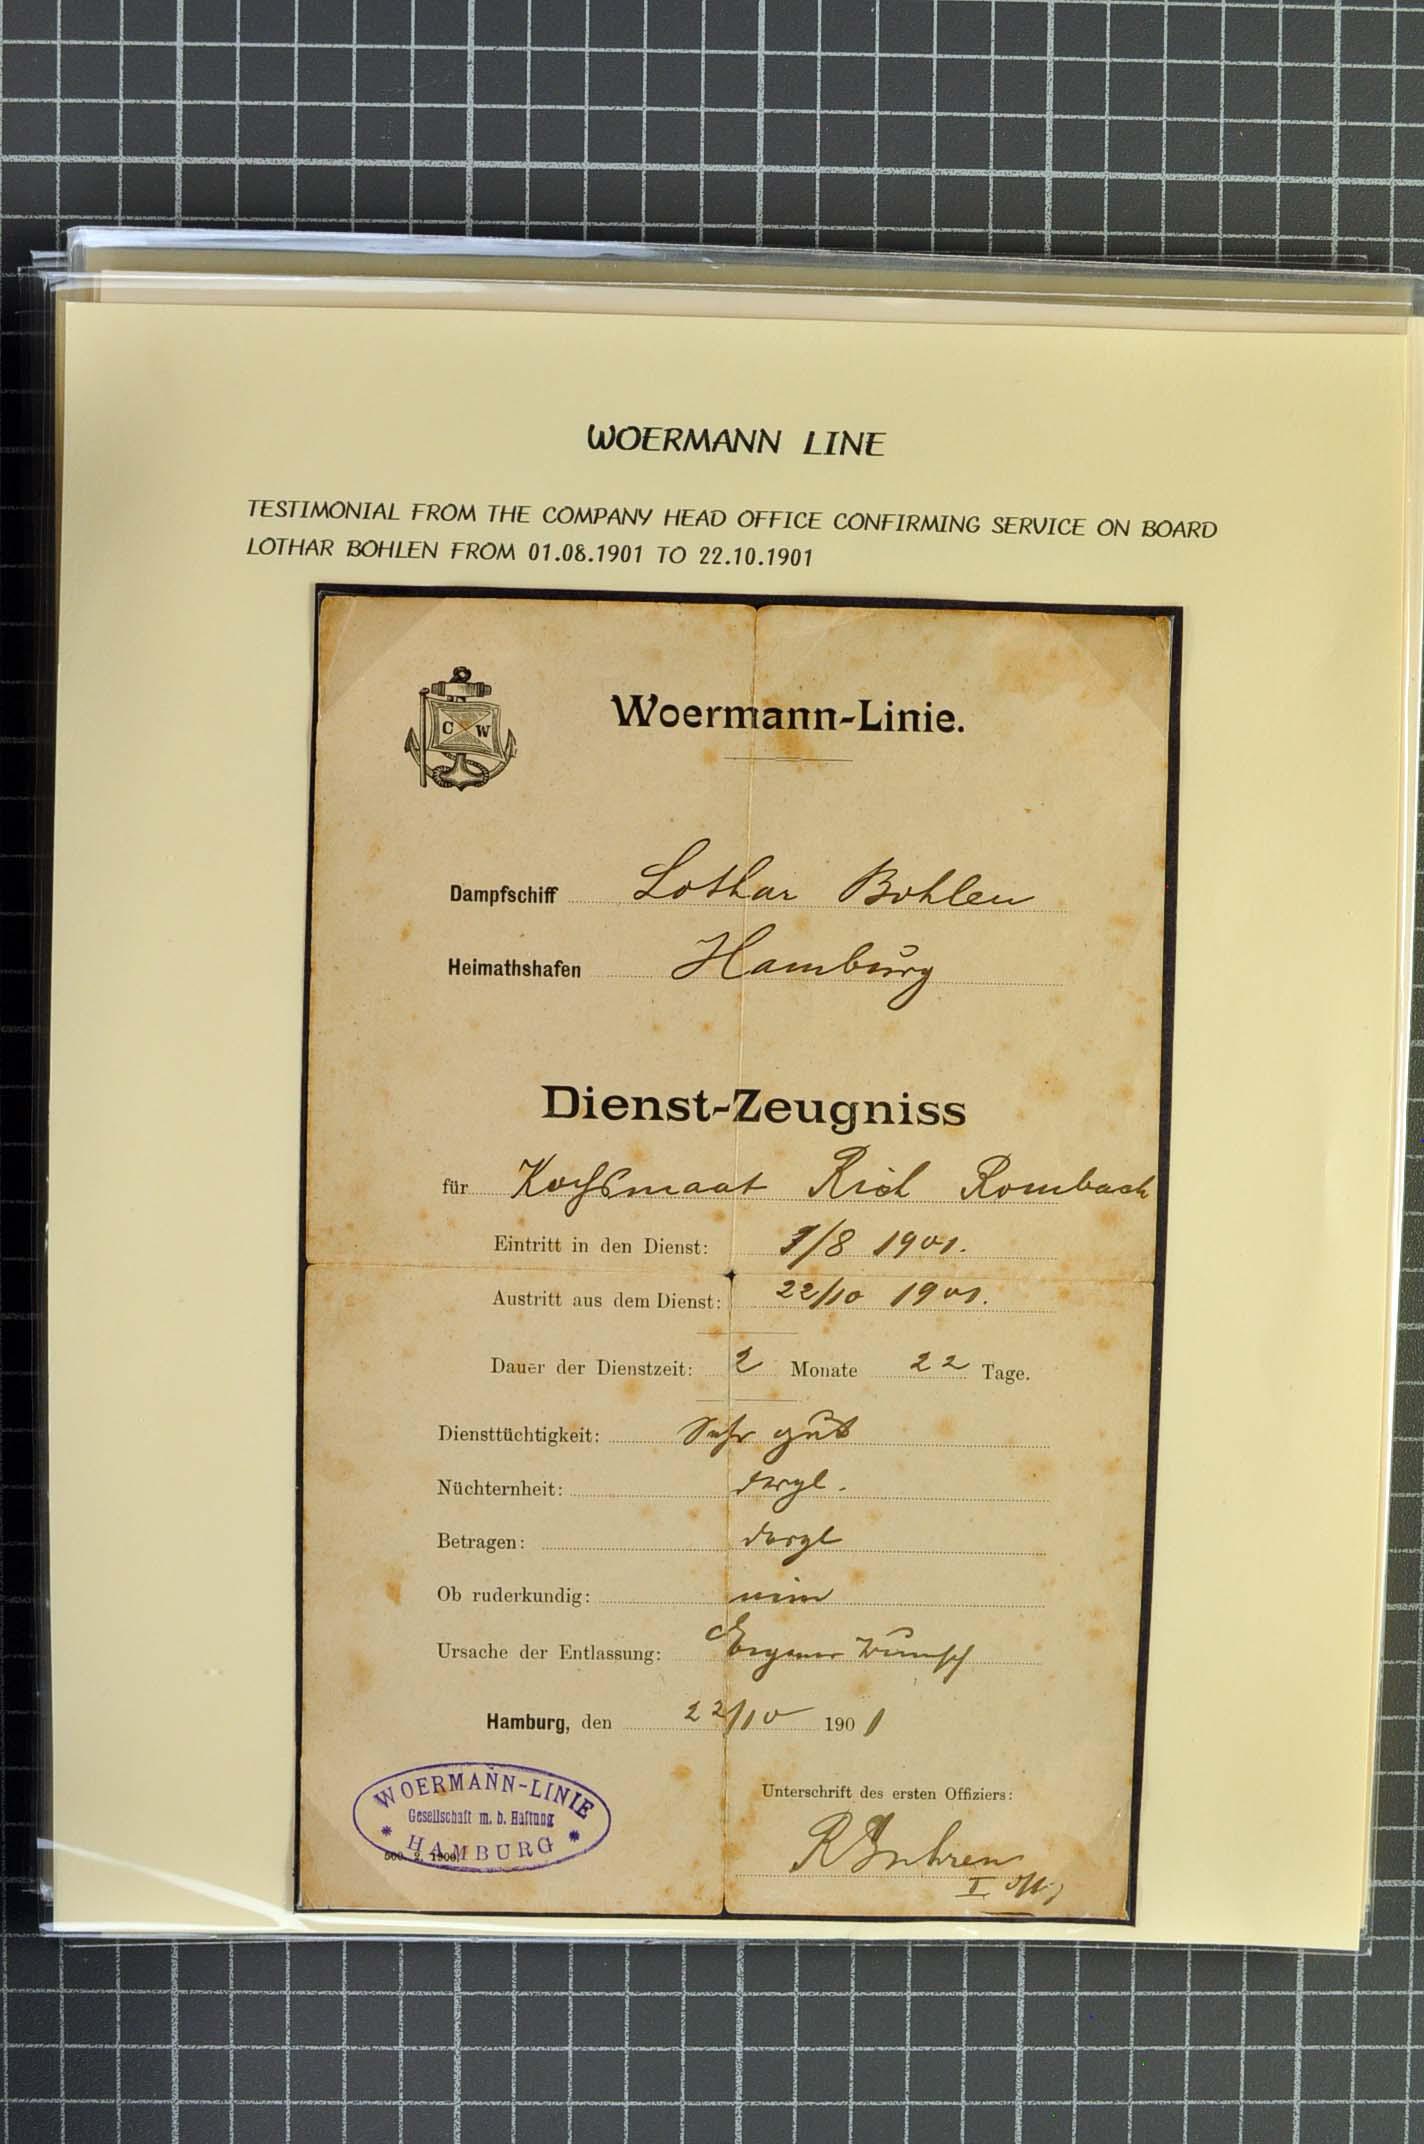 WOERMANN LINE
TESTIMONIAL FROM THE COMPANY HEAD OFFICE CONFIRMING SERVICE ON BOARD
LOTHAR BOHLEN FROM 01.08.1901 TO 22.10.1901
C W
Woermann-Linie.
Dampfschiff Lothar Bohlen
Heimathshafen Hamburg
Dienst-Zeugniss
für Kochsmaat Rich Rombach
Eintritt in den Dienst: 1/8 1901.
Austritt aus dem Dienst: 22/10 1901.
Dauer der Dienstzeit: 2 Monate 22 Tage.
Diensttüchtigkeit: Sehr gut
Nüchternheit: dergl.
Betragen: dergl
Ob ruderkundig: nein
Ursache der Entlassung: Eigener Wunsch
Hamburg, den 22/10 1901
WOERMANN-LINIE
Gesellschaft m. b. Haftung
HAMBURG
500. 2. 1900.
Unterschrift des ersten Offiziers:
I Offz